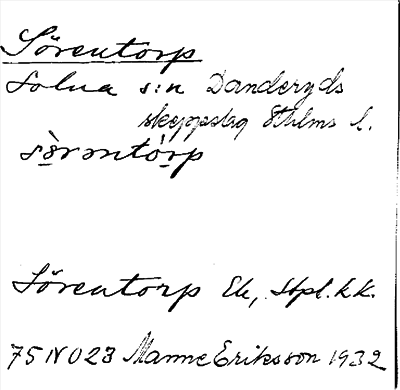 Sörentorp
Solna s:n Danderyds
skeppslag Sthlms l.
sò̀rəntó̀rp
Sörentorp Ek, Stpl. kk.
75 NO23 Manne Eriksson 1932